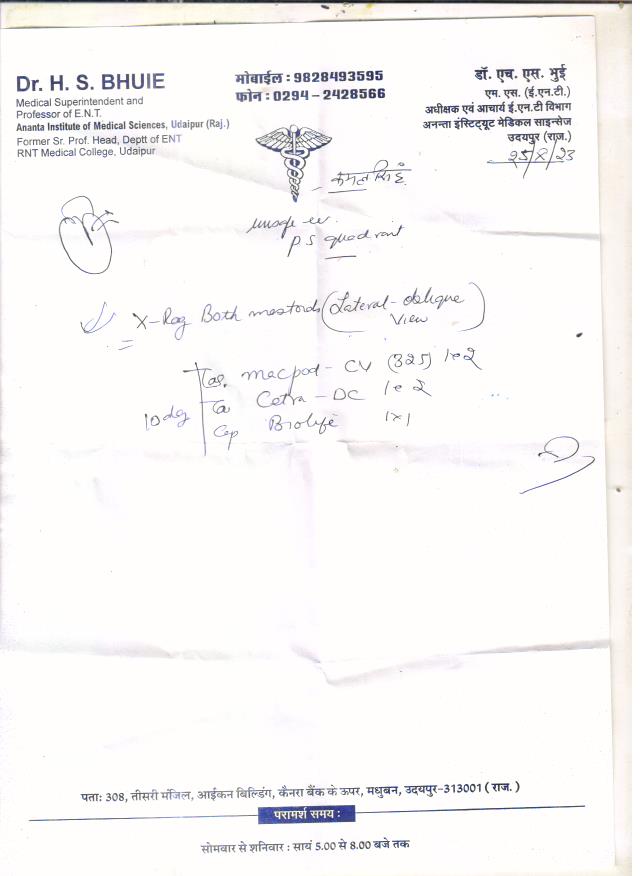 Dr. H. S. BHUIE
Medical Superintendent and
Professor of E.N.T.
Ananta Institute of Medical Sciences, Udaipur (Raj.)
Former Sr. Prof. Head, Deptt of ENT
RNT Medical College, Udaipur
मोबाईल : 9828493595
फोन : 0294 - 2428566
डॉ. एच. एस. भुई
एम. एस. (ई.एन.टी.)
अधीक्षक एवं आचार्य ई.एन.टी विभाग
अनन्ता इंस्टिट्यूट मेडिकल साइन्सेज
उदयपुर (राज.)
25/8/23
सिंह
P S quadrant
X-Ray Both mastoids (Lateral-oblique
View)
Macpod - CV (325) 1 e 2
Cetra - DC 1 e 2
Cap 1x1
पता: 308, तीसरी मंजिल, आईकन बिल्डिंग, कैनरा बैंक के ऊपर, मधुबन, उदयपुर-313001 ( राज. )
परामर्श समय :
सोमवार से शनिवार : सायं 5.00 से 8.00 बजे तक